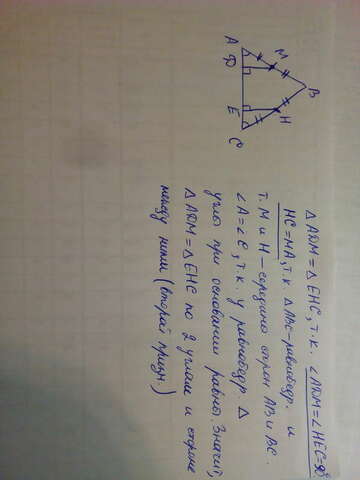 A
D
M
B
E
H
C
△ADM=△EHC, т.к. ∠ADM=∠HEC=90°
HC=MA, т.к. △ABC-равнобедр. и
т. M и H - середина сторон AB и BC.
∠A=∠C, т.к. у равнобедр. △
углы при основании равны. Значит,
△ADM=△EHC по 2 углам и стороне
между ними (второй призн.)